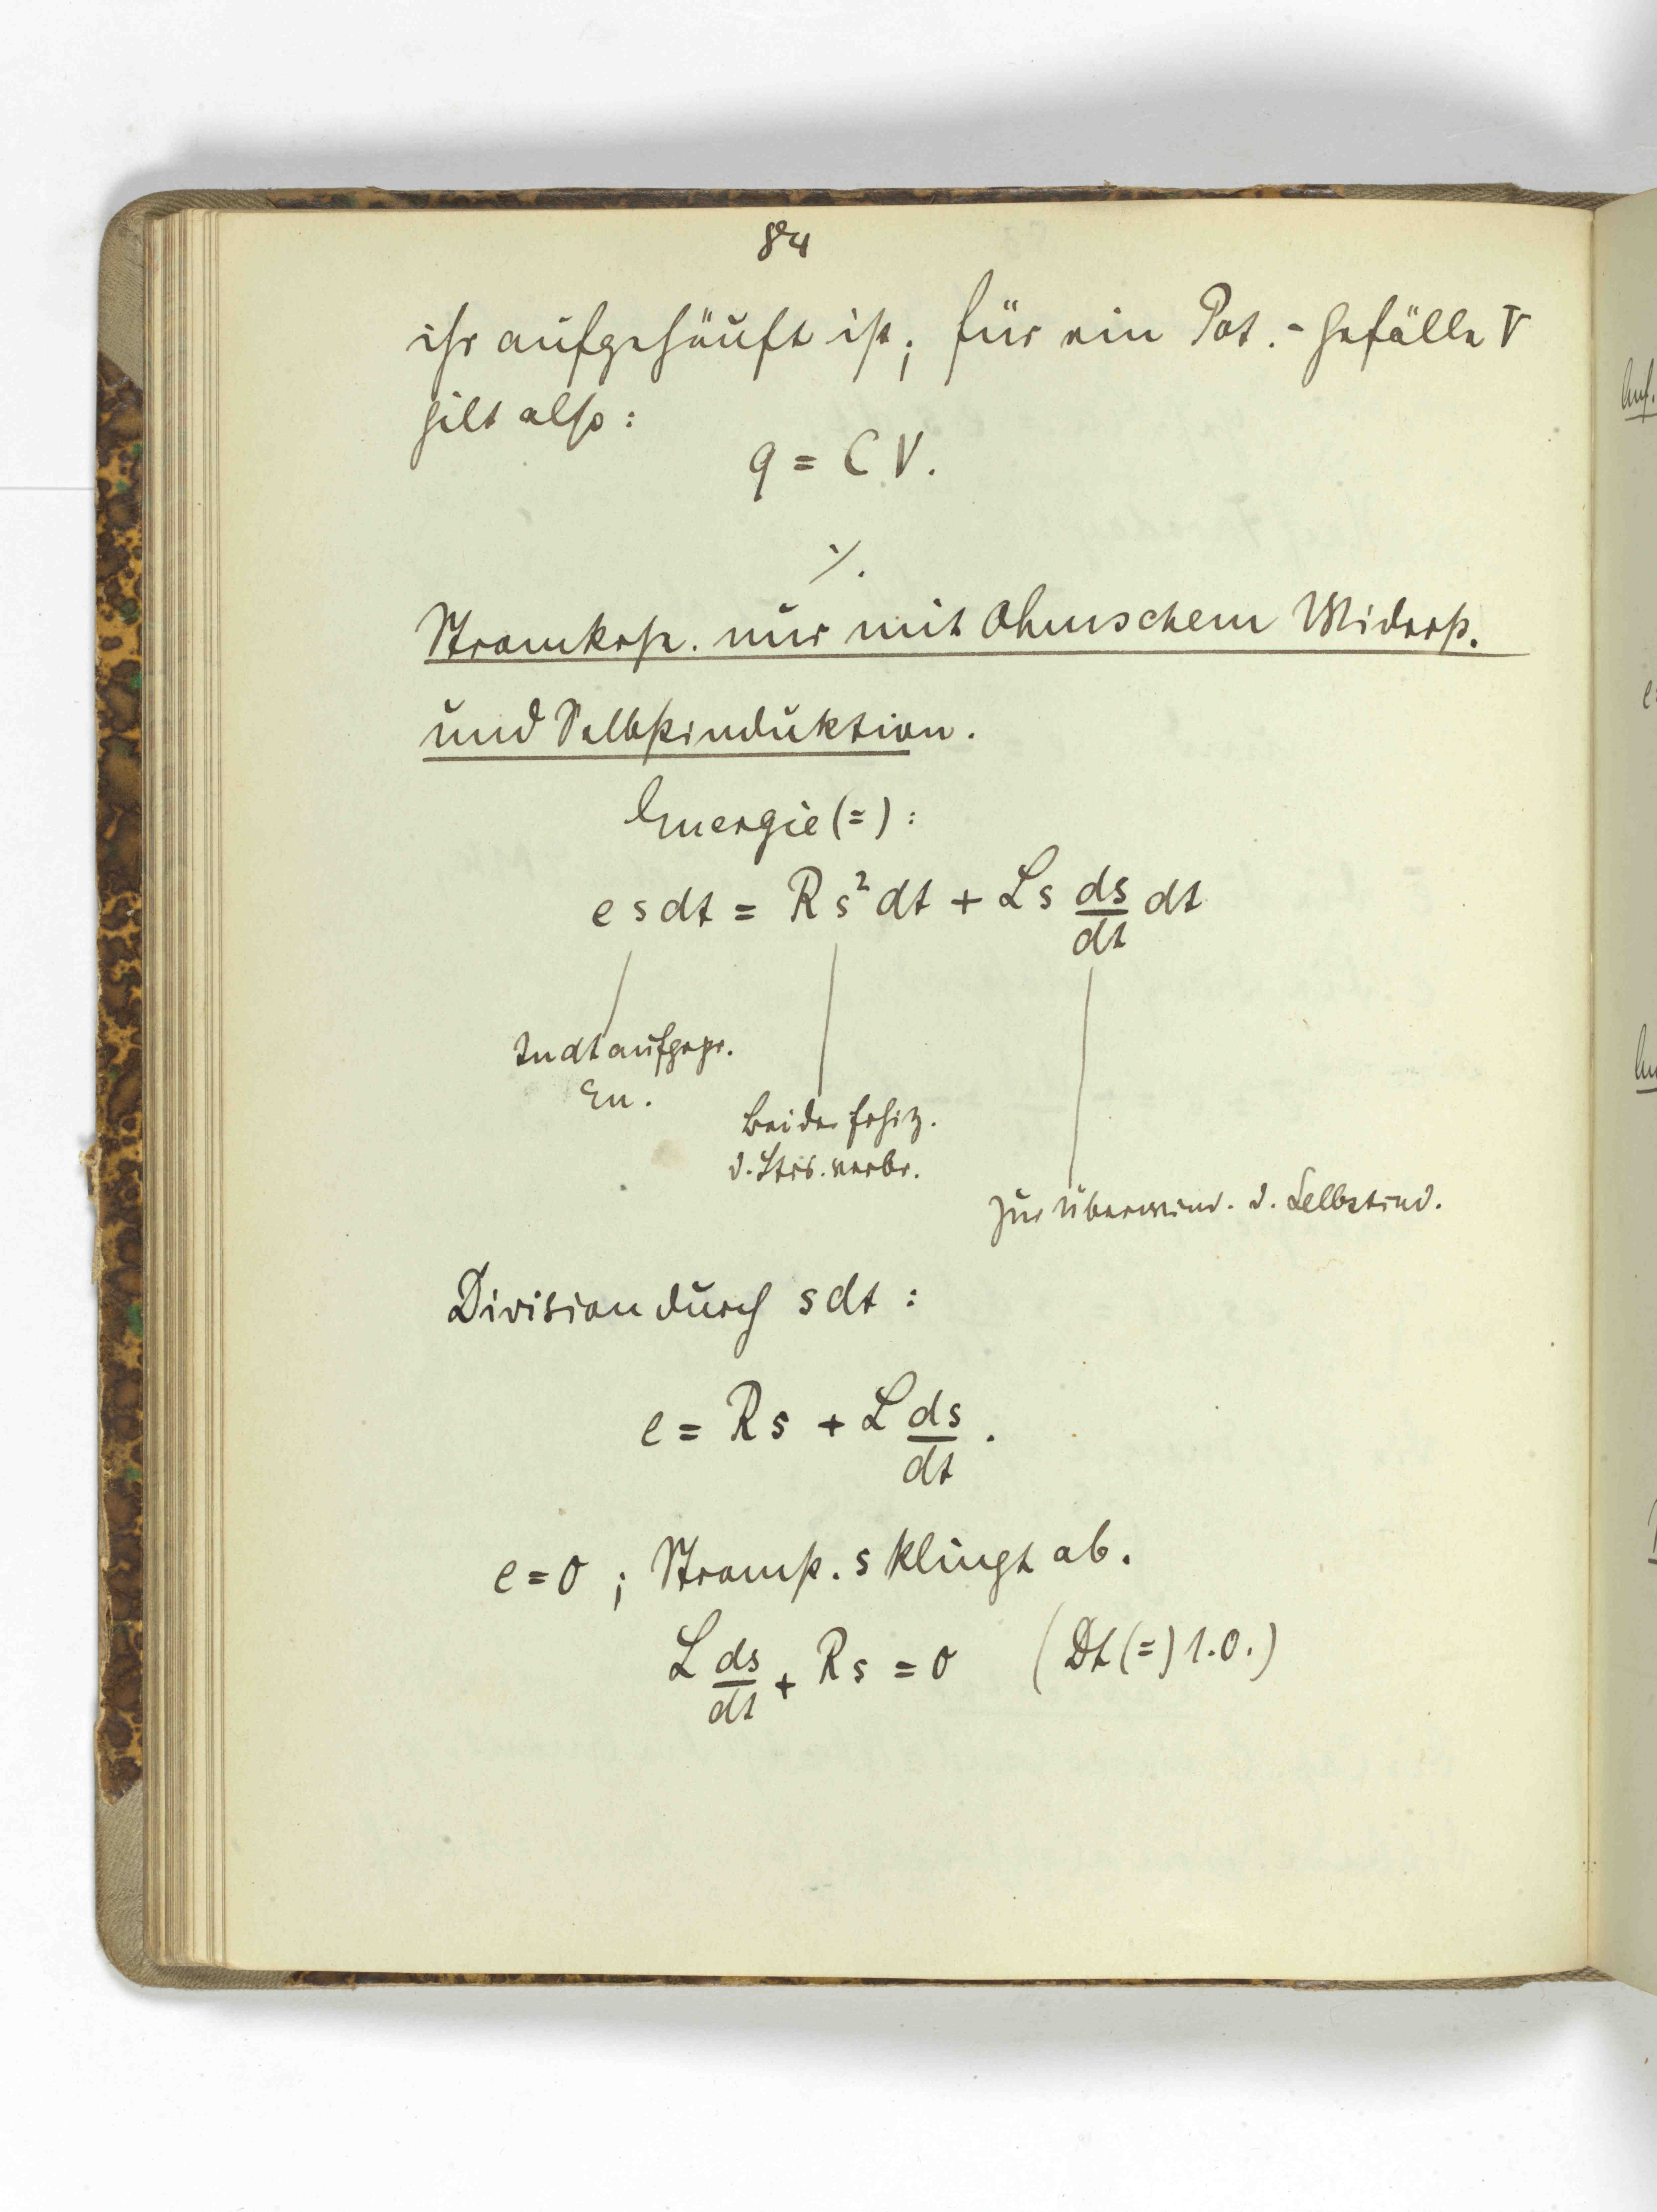 84
ihr aufgehäuft ist; für ein Pot.-Gefälle V
gilt also:
q = C V.
./.
Stromkrs. nur mit Ohmschem Widerst.
und Selbstinduktion.
Energie(=):
e s dt = R s² dt + L s ds/dt dt
In dt aufgesp.
En.
Bei der Erhitz.
d. Strs. verbr.
Zur Überwind. d. Selbstind.
Division durch s dt:
e = R s + L ds/dt.
e = 0; Stromst. s klingt ab.
L ds/dt + R s = 0 (Dt(=) 1.O.)